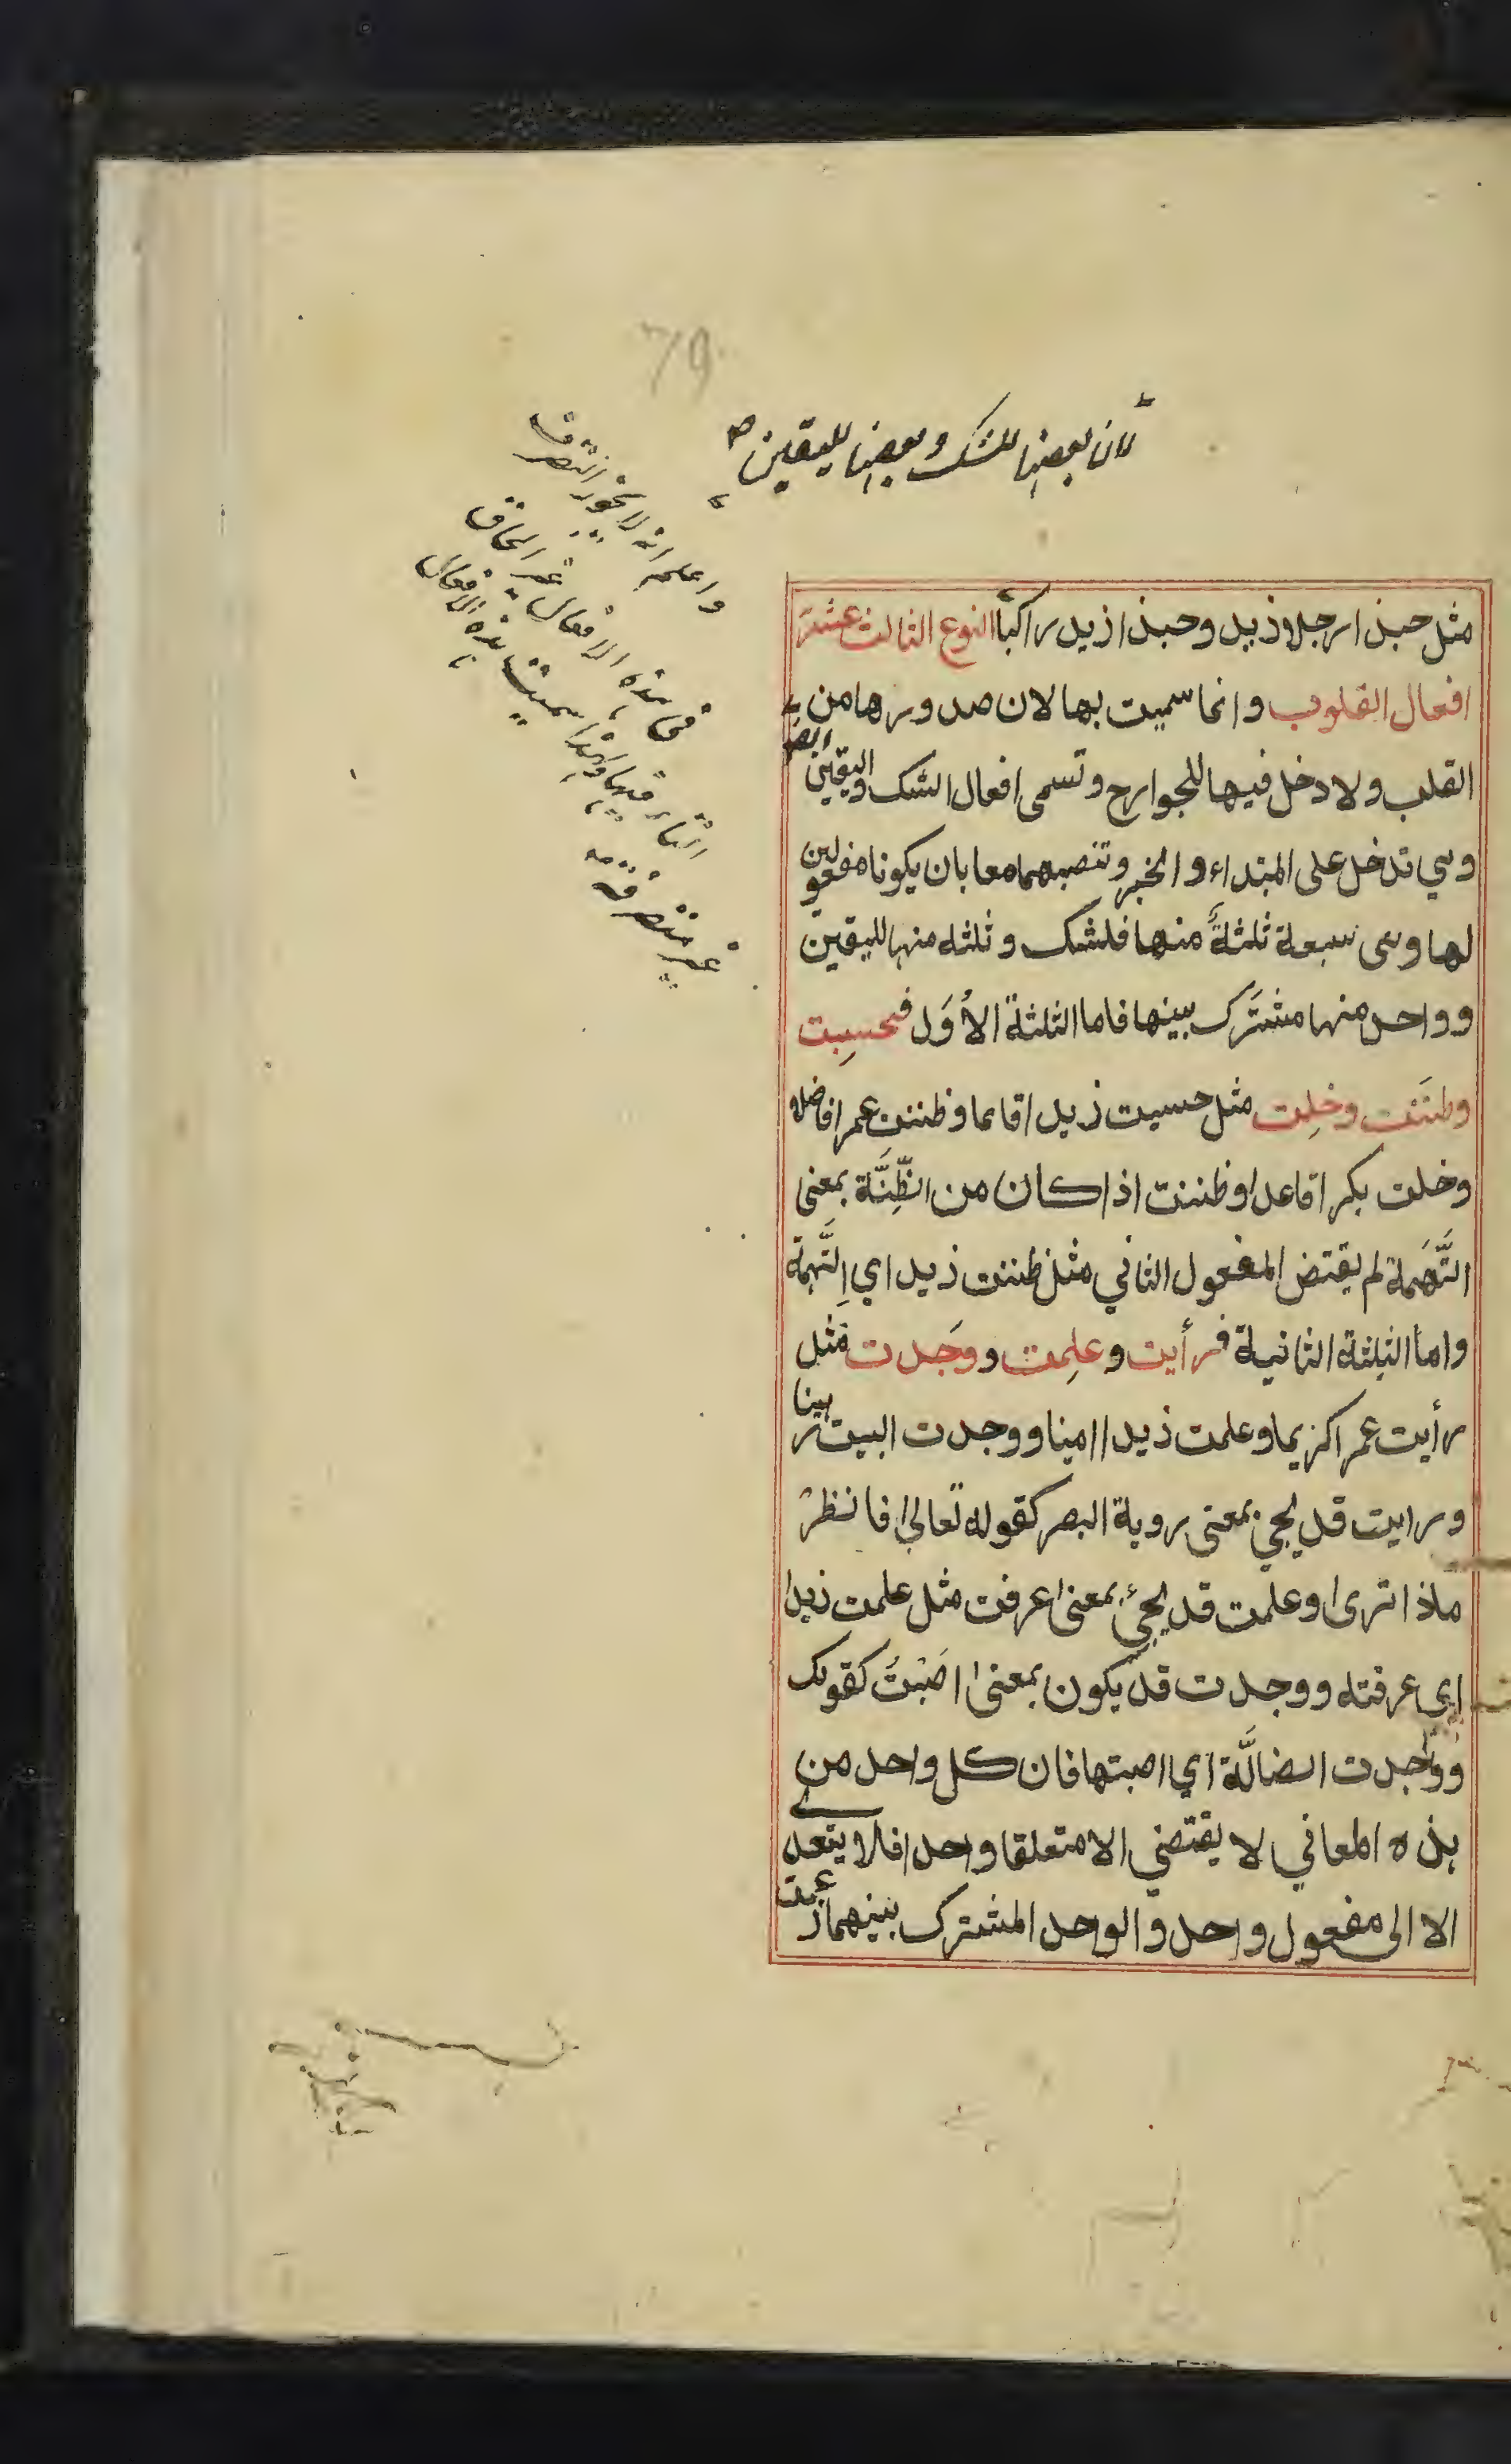 79
لان بعضها للشك وبعضها لليقين
واعلم انه لا يجوز التصرف
فى هذه الافعال غير الحاق
التاء فيها ولهذا سميت هذه الافعال
غير متصرفة
مثل حبذا رجلا زيد وحبذا زيد راكبا النوع الثالث عشر
افعال القلوب وانما سميت بها لان صدورها من
القلب ولا دخل فيها للجوارح وتسمى افعال الشك واليقين ايضا
وهي تدخل على المبتداء والخبر وتنصبهما معا بان يكونا مفعولين
لها وهى سبعة ثلثةٌ منها فلشك وثلثه منها لليقين
وواحد منها مشترَك بينها فاما الثلثة الأُوَل فحسِبت
وظنَنت وخِلت مثل حسبت زيدا قاىما وظننت عمرا فاضلا
وخلت بكرا قاعدا وظننت اذا كان من الظِّنَّة بمعنى
التَّهَمة لم يقتض المفعول الثاني مثل ظننت زيد اي اِتَّهمتة
واما الثلثة الثانية فرأيت وعلِمت ووَجدت مثل
رأيت عمرا كريما وعلمت زيدا امينا ووجدت البيت رهينا
ورايت قد يجي بمعنى روية البصر كقوله تعالىٰ فانظرْ
ماذا ترىٰ وعلمت قد يجئ بمعنىٰ عرفت مثل علمت زيدا
اي عرفته ووجدت قد يكون بمعنىٰ اصَبْتُ كقولك
ووجدت الضالَّة اي اصبتها فان كل واحد من
هذه المعاني لا يقتضي الا متعلقا واحدا فلا يتعدى
الا الى مفعول واحد والواحد المشترك بينهما زعمت